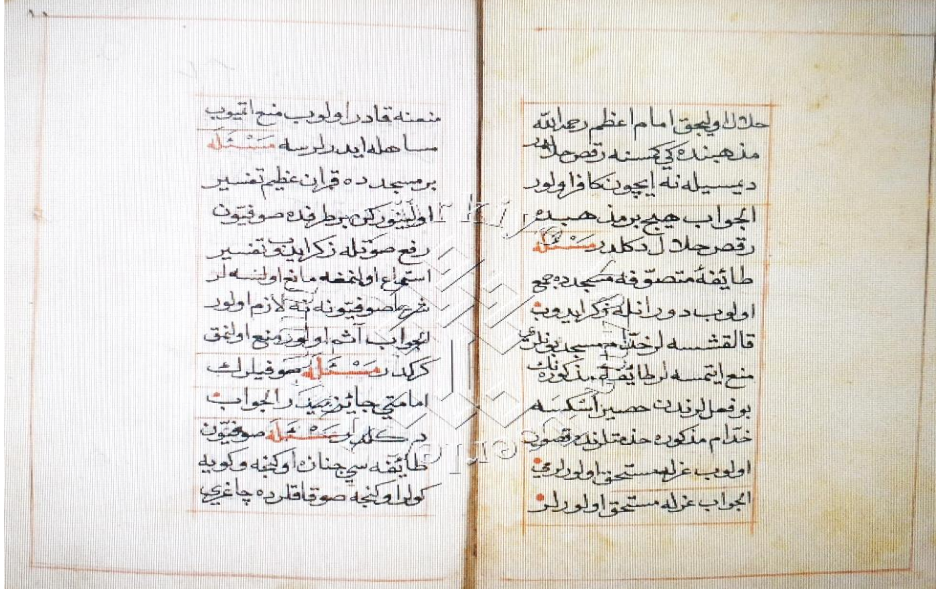 حلال اوليجق امام اعظم رحمه الله
مذهبنده كي كمسنه رقص حلالدر
ديسيله نه ايچون كافر اولور
الجواب هيچ برمذهبده
رقص حلال دكلدر مسئله
طائفۀ متصوّفه مسجدده جمع
اولوب دورانله ذكر ايدوب
قالقشسه لر خدّام مسجد بونلري
منع ايتمسه لر طائفۀ مذكوره نك
بو فعللرندن حصير اسكسه
خدّام مذكوره خدمتلرنده قصور
اولوب عزله مستحق اولورلرمي
الجواب عزله مستحق اولورلر
منعنه قادر اولوب منع اتميوب
مساهله ايدرلرسه مسئله
بر مسجدده قرآن عظيم تفسير
اولنيوركن بر طرفده صوفيّون
رفع صوتله ذكر ايديوب تفسير
استماع اولنمغه مانع اولسه لر
شرعا صوفيّونه نه لازم اولور
الجواب آثم اولور منع اولنمق
كركدر مسئله صوفيلرك
امامتي جايز ميدر الجواب
دكلدر مسئله صوفيّون
طائفه سي جنازه اوكنجه وكويه
كولر اوكنجه صوقاقلرده چاغري